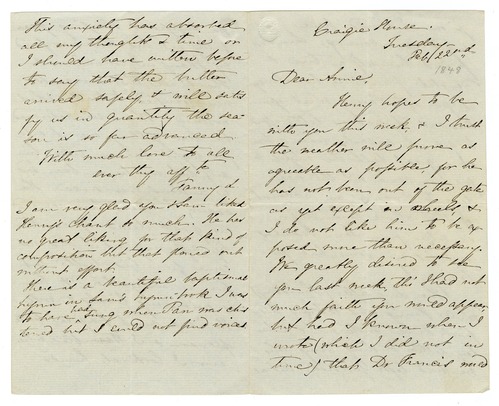 Craigie House.
Tuesday
Feby 22nd
1848
Dear Annie,
Henry hopes to be
with you this week, & I trust
the weather will prove as
agreeable as possible, for he
has not been out of the gate
as yet except on wheels, &
I do not like him to be ex
posed more than necessary.
We greatly desired to see
you last week tho' I had not
much faith you would appear,
but had I known when I
wrote (which I did not in
time) that Dr Francis would
This anxiety has absorbed
all my thoughts & time or
I should have written before
to say that the butter
arrived safely, & will satis
fy us in quantity the sea
son is so far advanced.
With much love to all
ever thy affte
Fanny
I am very glad you & Sam liked
Henny's Chant so much. He has
no great liking for that kind of
composition but that flowed out
without effort.
There is a beautiful baptismal
hymn in Sam's hymn book I was
to have had sung when Fan was chris
tened but I could not find voices